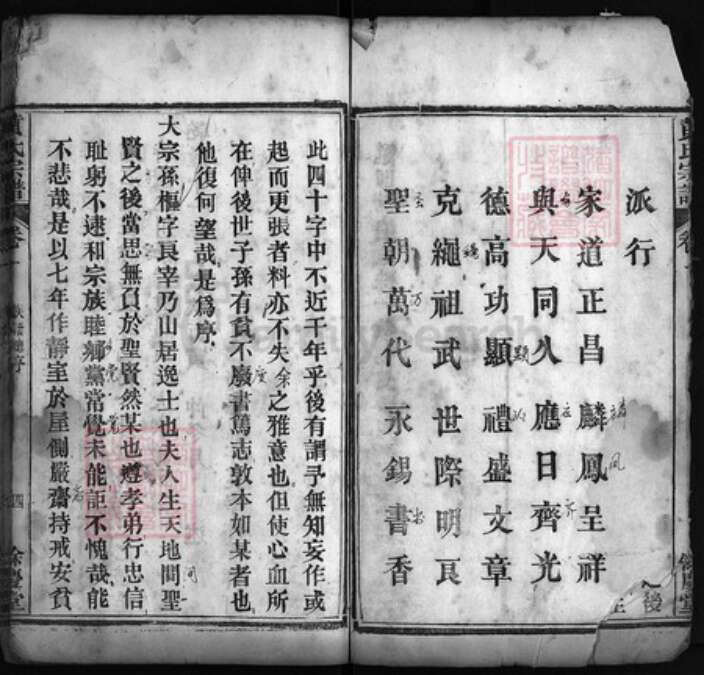 派行
家道正昌麟鳳呈祥
與天同久應日齊光
德高功顯禮盛文章
克繩祖武世際明良
聖朝萬代永錫書香
此四十字中不近千年乎後有謂予無知妄作或
起而更張者料亦不失余之雅意也但使心血所
在俾後世子孫有貧不廢書篤志敦本如某者也
他復何望哉是爲序
大宗孫樞字良宰乃山居逸士也夫人生天地間聖
賢之後當思無負於聖賢然某也遵孝弟行忠信
恥躬不逮和宗族睦鄉黨常覺未能詎不愧哉能
不悲哉是以七年作靜室於屋側嚴齋持戒安貧
氏宗譜
四
FamilySearch